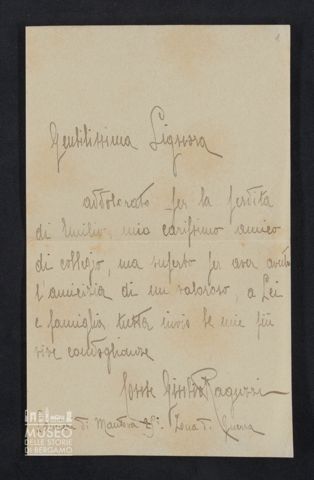 Gentilissima Signora
addolorato per la perdita
di Emilio, mio carissimo amico
di collegio, ma superbo per aver avuto
l'amicizia di un valoroso, a Lei
e famiglia tutta invio le mie più
vive condoglianze
Ragazzi
di Mantova Zona di Guerra
MUSEO
DELLE STORIE
DI BERGAMO